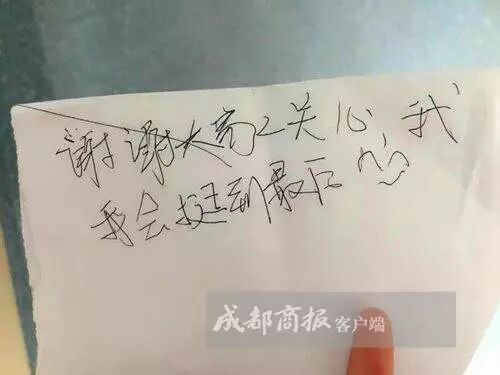 谢谢大高工关心,我
我会挺到最后
成都商报客户端